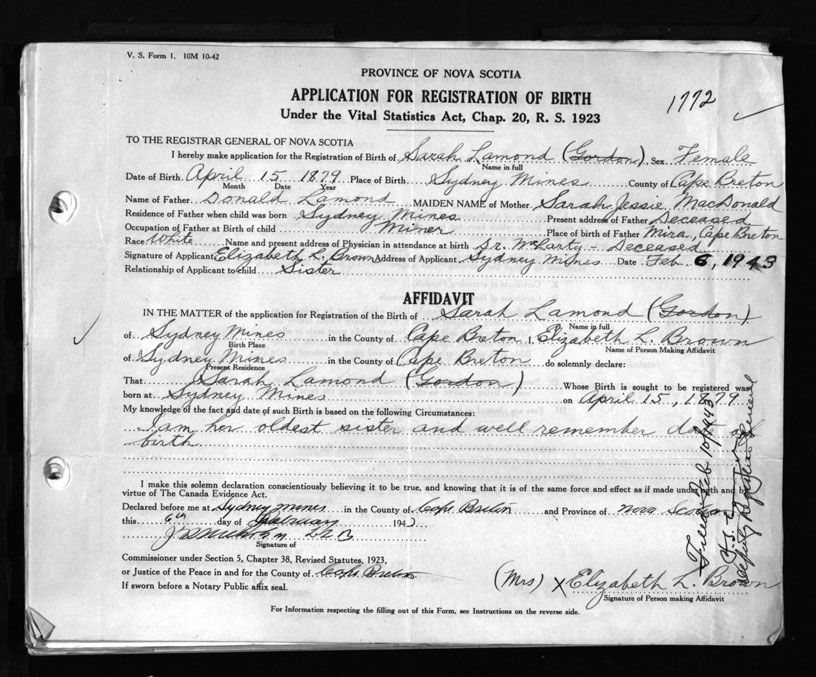 V. S. Form 1. 10M 10-42
PROVINCE OF NOVA SCOTIA
APPLICATION FOR REGISTRATION OF BIRTH
1772
Under the Vital Statistics Act, Chap. 20, R. S. 1923
TO THE REGISTRAR GENERAL OF NOVA SCOTIA
I hereby make application for the Registration of Birth of Sarah Lamond (Gordon), Sex Female
Name in full
Date of Birth April 15 1879 Place of Birth Sydney Mines County of Cape Breton
Month Date Year
Name of Father Donald Lamond MAIDEN NAME of Mother Sarah Jessie MacDonald
Residence of Father when child was born Sydney Mines Present address of Father Deceased
Occupation of Father at Birth of child Miner Place of birth of Father Mira, Cape Breton
Race White Name and present address of Physician in attendance at birth Dr. McLarty - Deceased
Signature of Applicant Elizabeth L. Brown Address of Applicant Sydney Mines Date Feb 6, 1943
Relationship of Applicant to Child Sister
AFFIDAVIT
IN THE MATTER of the application for Registration of the Birth of Sarah Lamond (Gordon)
Name in full
of Sydney Mines in the County of Cape Breton I, Elizabeth L. Brown
Birth Place Name of Person Making Affidavit
of Sydney Mines in the County of Cape Breton do solemnly declare:
Present Residence
That Sarah Lamond (Gordon) Whose Birth is sought to be registered was
born at Sydney Mines on April 15, 1879
My knowledge of the fact and date of such Birth is based on the following Circumstances:
I am her oldest sister and well remember date of
birth
I make this solemn declaration conscientiously believing it to be true, and knowing that it is of the same force and effect as if made under oath and by
virtue of The Canada Evidence Act.
Declared before me at Sydney Mines in the County of Cape Breton and Province of Nova Scotia
this 6th day of February 1943
Signature of
Commissioner under Section 5, Chapter 38, Revised Statutes, 1923,
or Justice of the Peace in and for the County of Cape Breton
If sworn before a Notary Public affix seal.
(Mrs) X Elizabeth L. Brown
Signature of Person making Affidavit
For Information respecting the filling out of this Form, see Instructions on the reverse side.
Filed Feb 10/1943
Deputy Registrar General